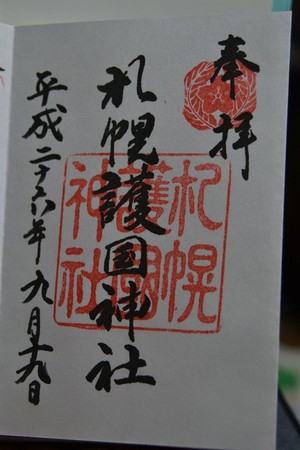 奉拝
札幌護国神社
平成二十六年九月十九日
札幌
護國
神社